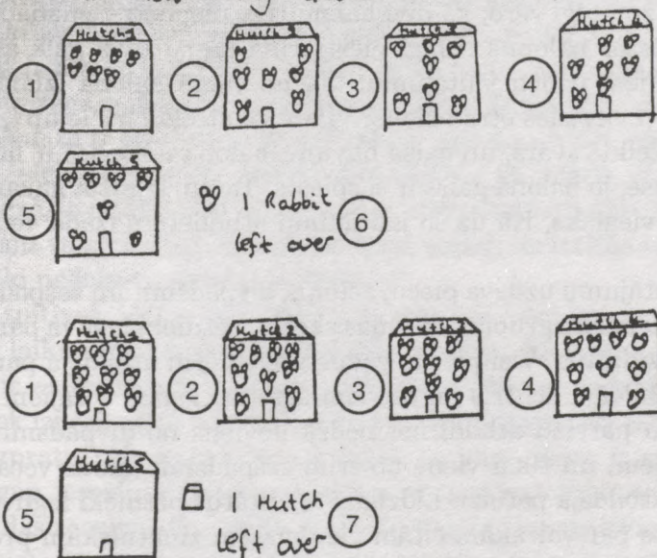 Hutch 1 Hutch 2 Hutch 3 Hutch 4
1 2 3 4
Hutch 5
5 1 Rabbit
left over 6
Hutch 1 Hutch 2 Hutch 3 Hutch 4
2 3 4
Hutch 5
5 1 Hutch
left over 7